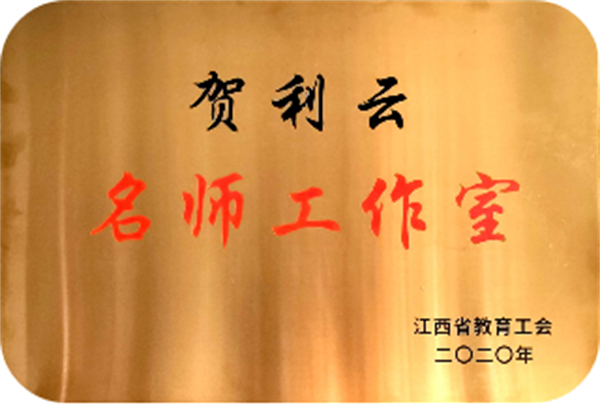 贺利云
名师工作室
江西省教育工会
二〇二〇年